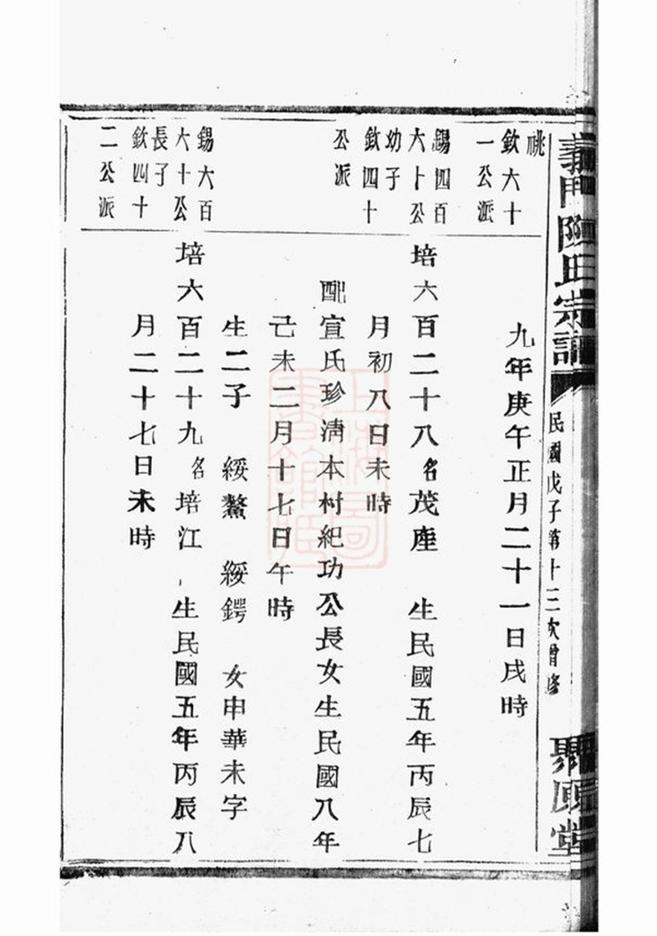 義門陳氏宗譜
民國戊子第十三次增修
聚原堂
祧
欽六十
一公派
九年庚午正月二十一日戌時
錫四百
六十公
幼子
欽四十
公派
培六百二十八名茂產 生民國五年丙辰七
月初八日未時
配宣氏珍淸本村紀功公長女生民國八年
己未二月十七日午時
生二子 綏鰲 綏鍔 女申華未字
錫六百
六十公
長子
欽四十
二公派
培六百二十九名培江 生民國五年丙辰八
月二十七日未時
上海圖
書館藏